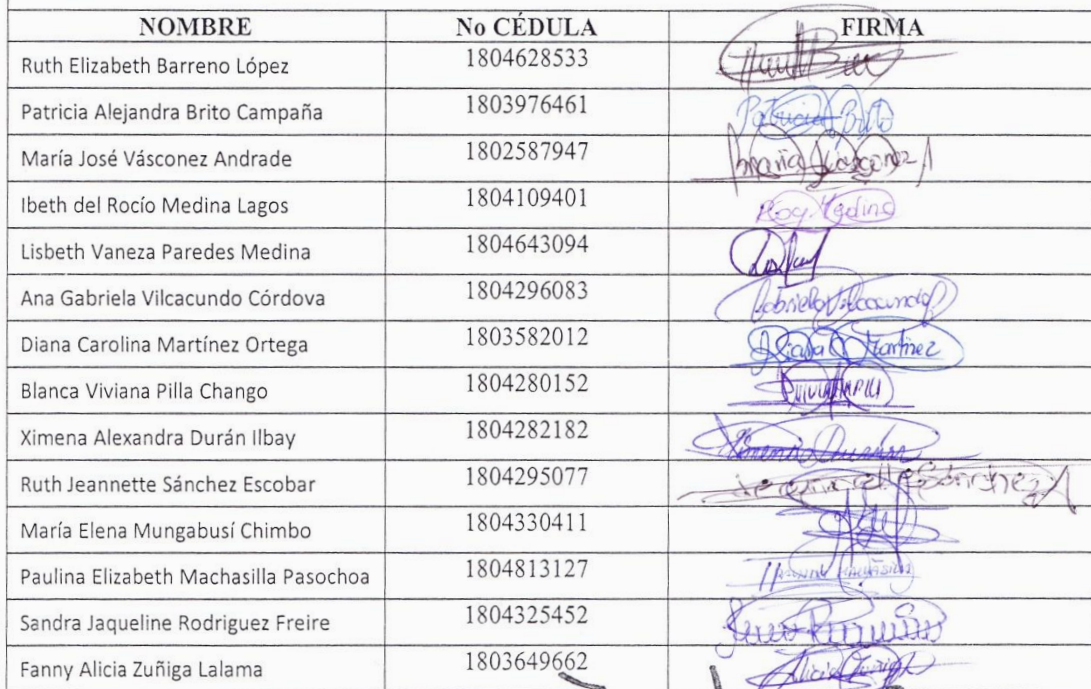 NOMBRE No CÉDULA FIRMA
Ruth Elizabeth Barreno López 1804628533
Patricia Alejandra Brito Campaña 1803976461 Patricia Brito
María José Vásconez Andrade 1802587947 María Vásconez A
Ibeth del Rocío Medina Lagos 1804109401 Medina
Lisbeth Vaneza Paredes Medina 1804643094
Ana Gabriela Vilcacundo Córdova 1804296083 Gabriela Vilcacundo
Diana Carolina Martínez Ortega 1803582012 Diana Martinez
Blanca Viviana Pilla Chango 1804280152
Ximena Alexandra Durán Ilbay 1804282182 Ximena Durán
Ruth Jeannette Sánchez Escobar 1804295077 Sánchez
María Elena Mungabusí Chimbo 1804330411
Paulina Elizabeth Machasilla Pasochoa 1804813127
Sandra Jaqueline Rodriguez Freire 1804325452
Fanny Alicia Zuñiga Lalama 1803649662 Alicia Zuñiga